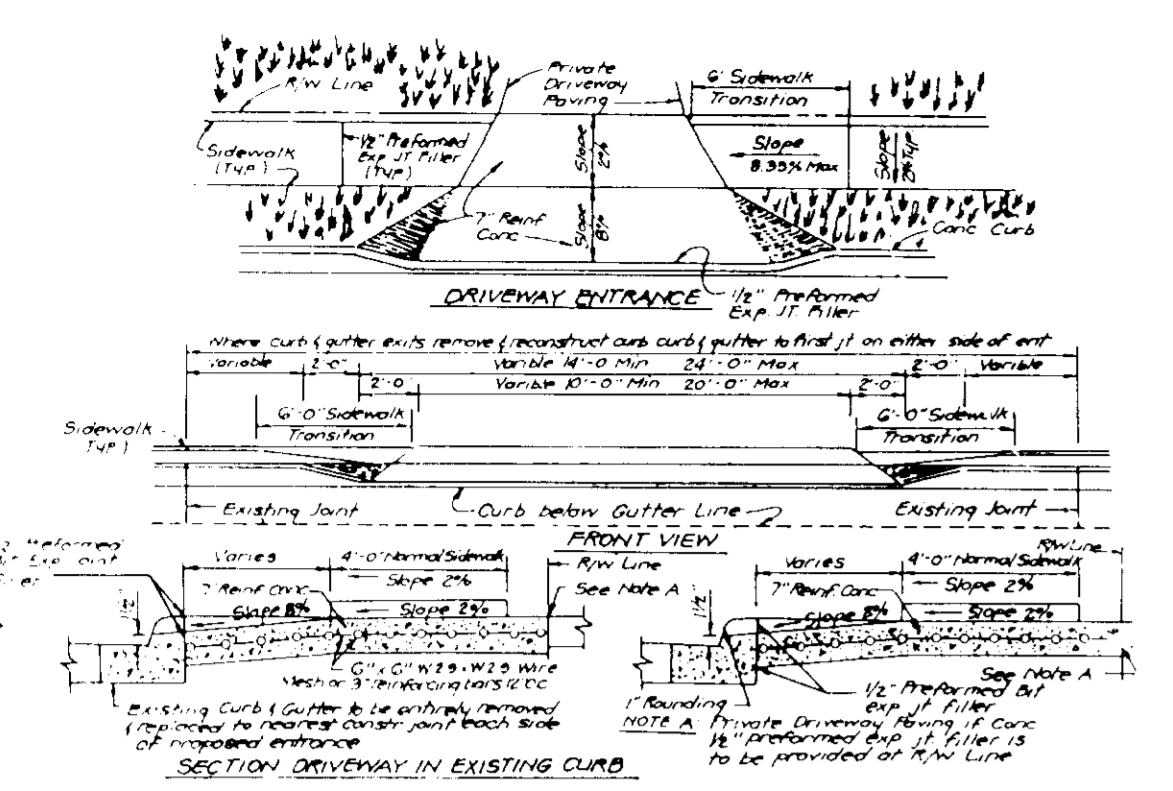 R/W Line
Private
Driveway
Paving
6' Sidewalk
Transition
Sidewalk
(Typ)
1/2" Preformed
Exp JT Filler
(Typ)
Slope
2%
Slope
8.33% Max
Slope
2% Typ
7" Reinf
Conc
Slope
8%
Conc Curb
DRIVEWAY ENTRANCE
1/2" Preformed
Exp. JT. Filler
Where curb & gutter exits remove & reconstruct curb curb & gutter to first jt on either side of ent
Variable
2'-0"
Varible 14'-0 Min 24'-0" Max
2'-0"
Varible
2'-0
Varible 10'-0" Min 20'-0" Max
2'-0"
6'-0" Sidewalk
Transition
6'-0" Sidewalk
Transition
Sidewalk
Typ)
Existing Joint
Curb below Gutter Line
Existing Joint
FRONT VIEW
Varies
4'-0" Normal Sidewalk
Slope 2%
R/W Line
See Note A
7" Reinf Conc
Slope 8%
Slope 2%
1 1/2"
6" x 6" W2.9 x W2.9 Wire
Mesh or 3" reinforcing bars 12" OC
Existing Curb & Gutter to be entirely removed
& replaced to nearest constr joint each side
of proposed entrance
SECTION DRIVEWAY IN EXISTING CURB
R/W Line
Varies
4'-0" Normal Sidewalk
Slope 2%
7" Reinf. Conc
Slope 8%
Slope 2%
1 1/2"
See Note A
1" Rounding
1/2" Preformed Bit
exp jt filler
NOTE A: Private Driveway Paving if Conc
1/2" preformed exp jt. filler is
to be provided at R/W Line